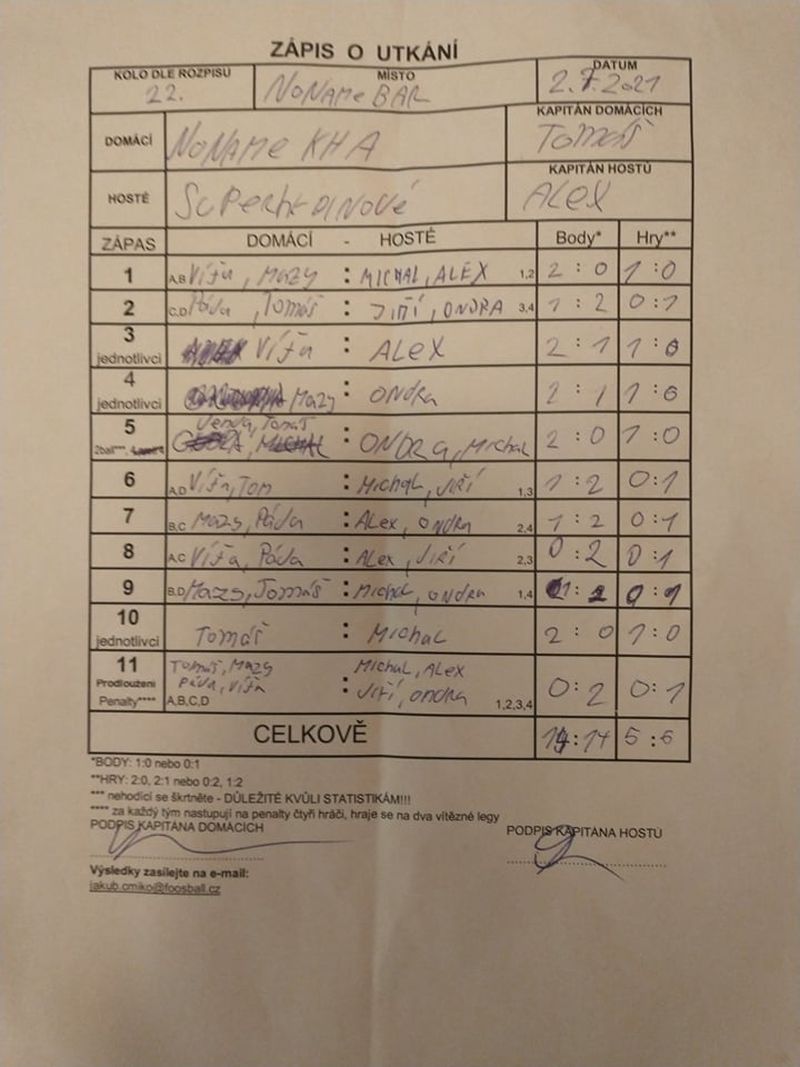 ZÁPIS O UTKÁNÍ
KOLO DLE ROZPISU MÍSTO DATUM
22. NONAME BAR 2.7.2021
KAPITÁN DOMÁCÍCH
DOMÁCÍ NONAME KHA TOMÁŠ
KAPITÁN HOSTŮ
HOSTÉ SUPERHRDINOVÉ ALEX
ZÁPAS DOMÁCÍ - HOSTÉ Body* Hry**
1 A,B Víťa, MAZY : MICHAL, ALEX 1,2 2 : 0 1 : 0
2 C,D Páďa, Tomáš : JIŘÍ, ONDRA 3,4 1 : 2 0 : 1
3 jednotlivci Víťa : ALEX 2 : 1 1 : 0
4 jednotlivci MAZY : ONDRA 2 : 1 1 : 0
5 2bal***, Tomáš : ONDRA, Michal 2 : 0 1 : 0
6 A,D Víťa, Tom : Michal, Jiří 1,3 1 : 2 0 : 1
7 B,C MAZY, Páďa : ALEX, ONDRA 2,4 1 : 2 0 : 1
8 A,C Víťa, Páďa : ALEX, JIŘÍ 2,3 0 : 2 0 : 1
9 B,D MAZY, Tomáš : Michal, ONDRA 1,4 1 : 2 0 : 1
10 jednotlivci Tomáš : Michal 2 : 0 1 : 0
11 Tomáš, MAZY Michal, ALEX
Prodloužení Páďa, Víťa : JIŘÍ, ONDRA 0 : 2 0 : 1
Penalty**** A,B,C,D 1,2,3,4
CELKOVĚ 14 : 14 5 : 6
*BODY: 1:0 nebo 0:1
**HRY: 2:0, 2:1 nebo 0:2, 1:2
*** nehodící se škrtněte - DŮLEŽITÉ KVŮLI STATISTIKÁM!!!
**** za každý tým nastupují na penalty čtyři hráči, hraje se na dva vítězné legy
PODPIS KAPITÁNA DOMÁCÍCH PODPIS KAPITÁNA HOSTŮ
Výsledky zasílejte na e-mail:
jakub.cmiko@foosball.cz